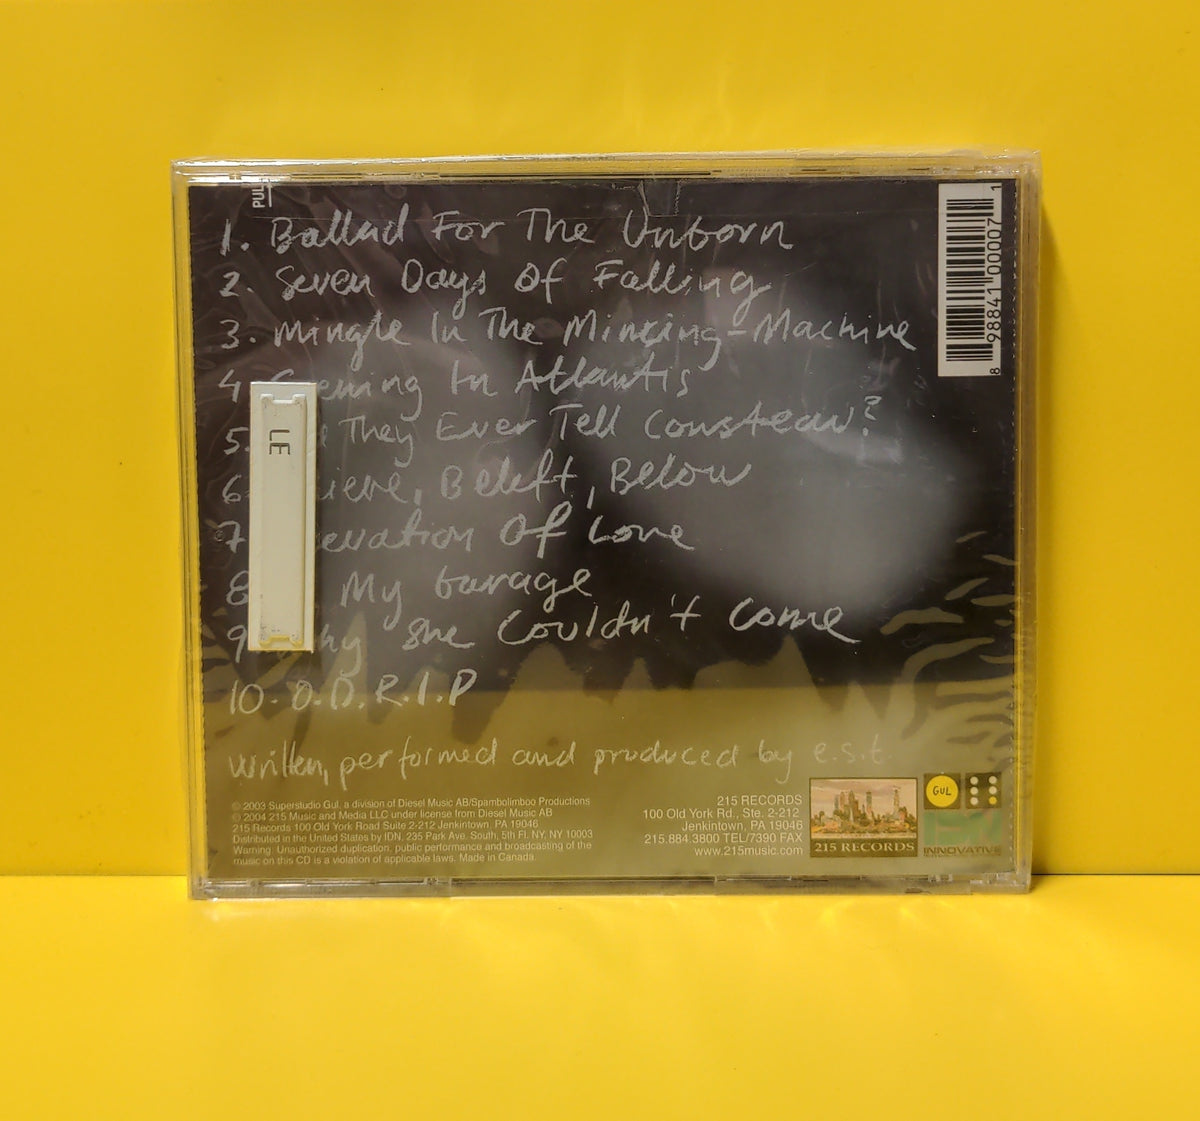 PUL
1. Ballad For The Unborn
2. Seven Days Of Falling
3. Mingle In The Mincing-Machine
4 In Atlantis
5. They Ever Tell Cousteau?
6 Beleft, Below
7 Of Love
8 My Garage
9 She Couldn't Come
10. O.D.R.I.P
LE
written, performed and produced by e.s.t.
8 98841 00007 1
© 2003 Superstudio Gul, a division of Diesel Music AB/Spambolimboo Productions
© 2004 215 Music and Media LLC under license from Diesel Music AB
215 Records 100 Old York Road Suite 2-212 Jenkintown, PA 19046
Distributed in the United States by IDN, 235 Park Ave. South, 5th Fl. NY, NY 10003
Warning: Unauthorized duplication, public performance and broadcasting of the
music on this CD is a violation of applicable laws. Made in Canada.
215 RECORDS
100 Old York Rd., Ste. 2-212
Jenkintown, PA 19046
215.884.3800 TEL/7390 FAX
www.215music.com
215 RECORDS
GUL
INNOVATIVE